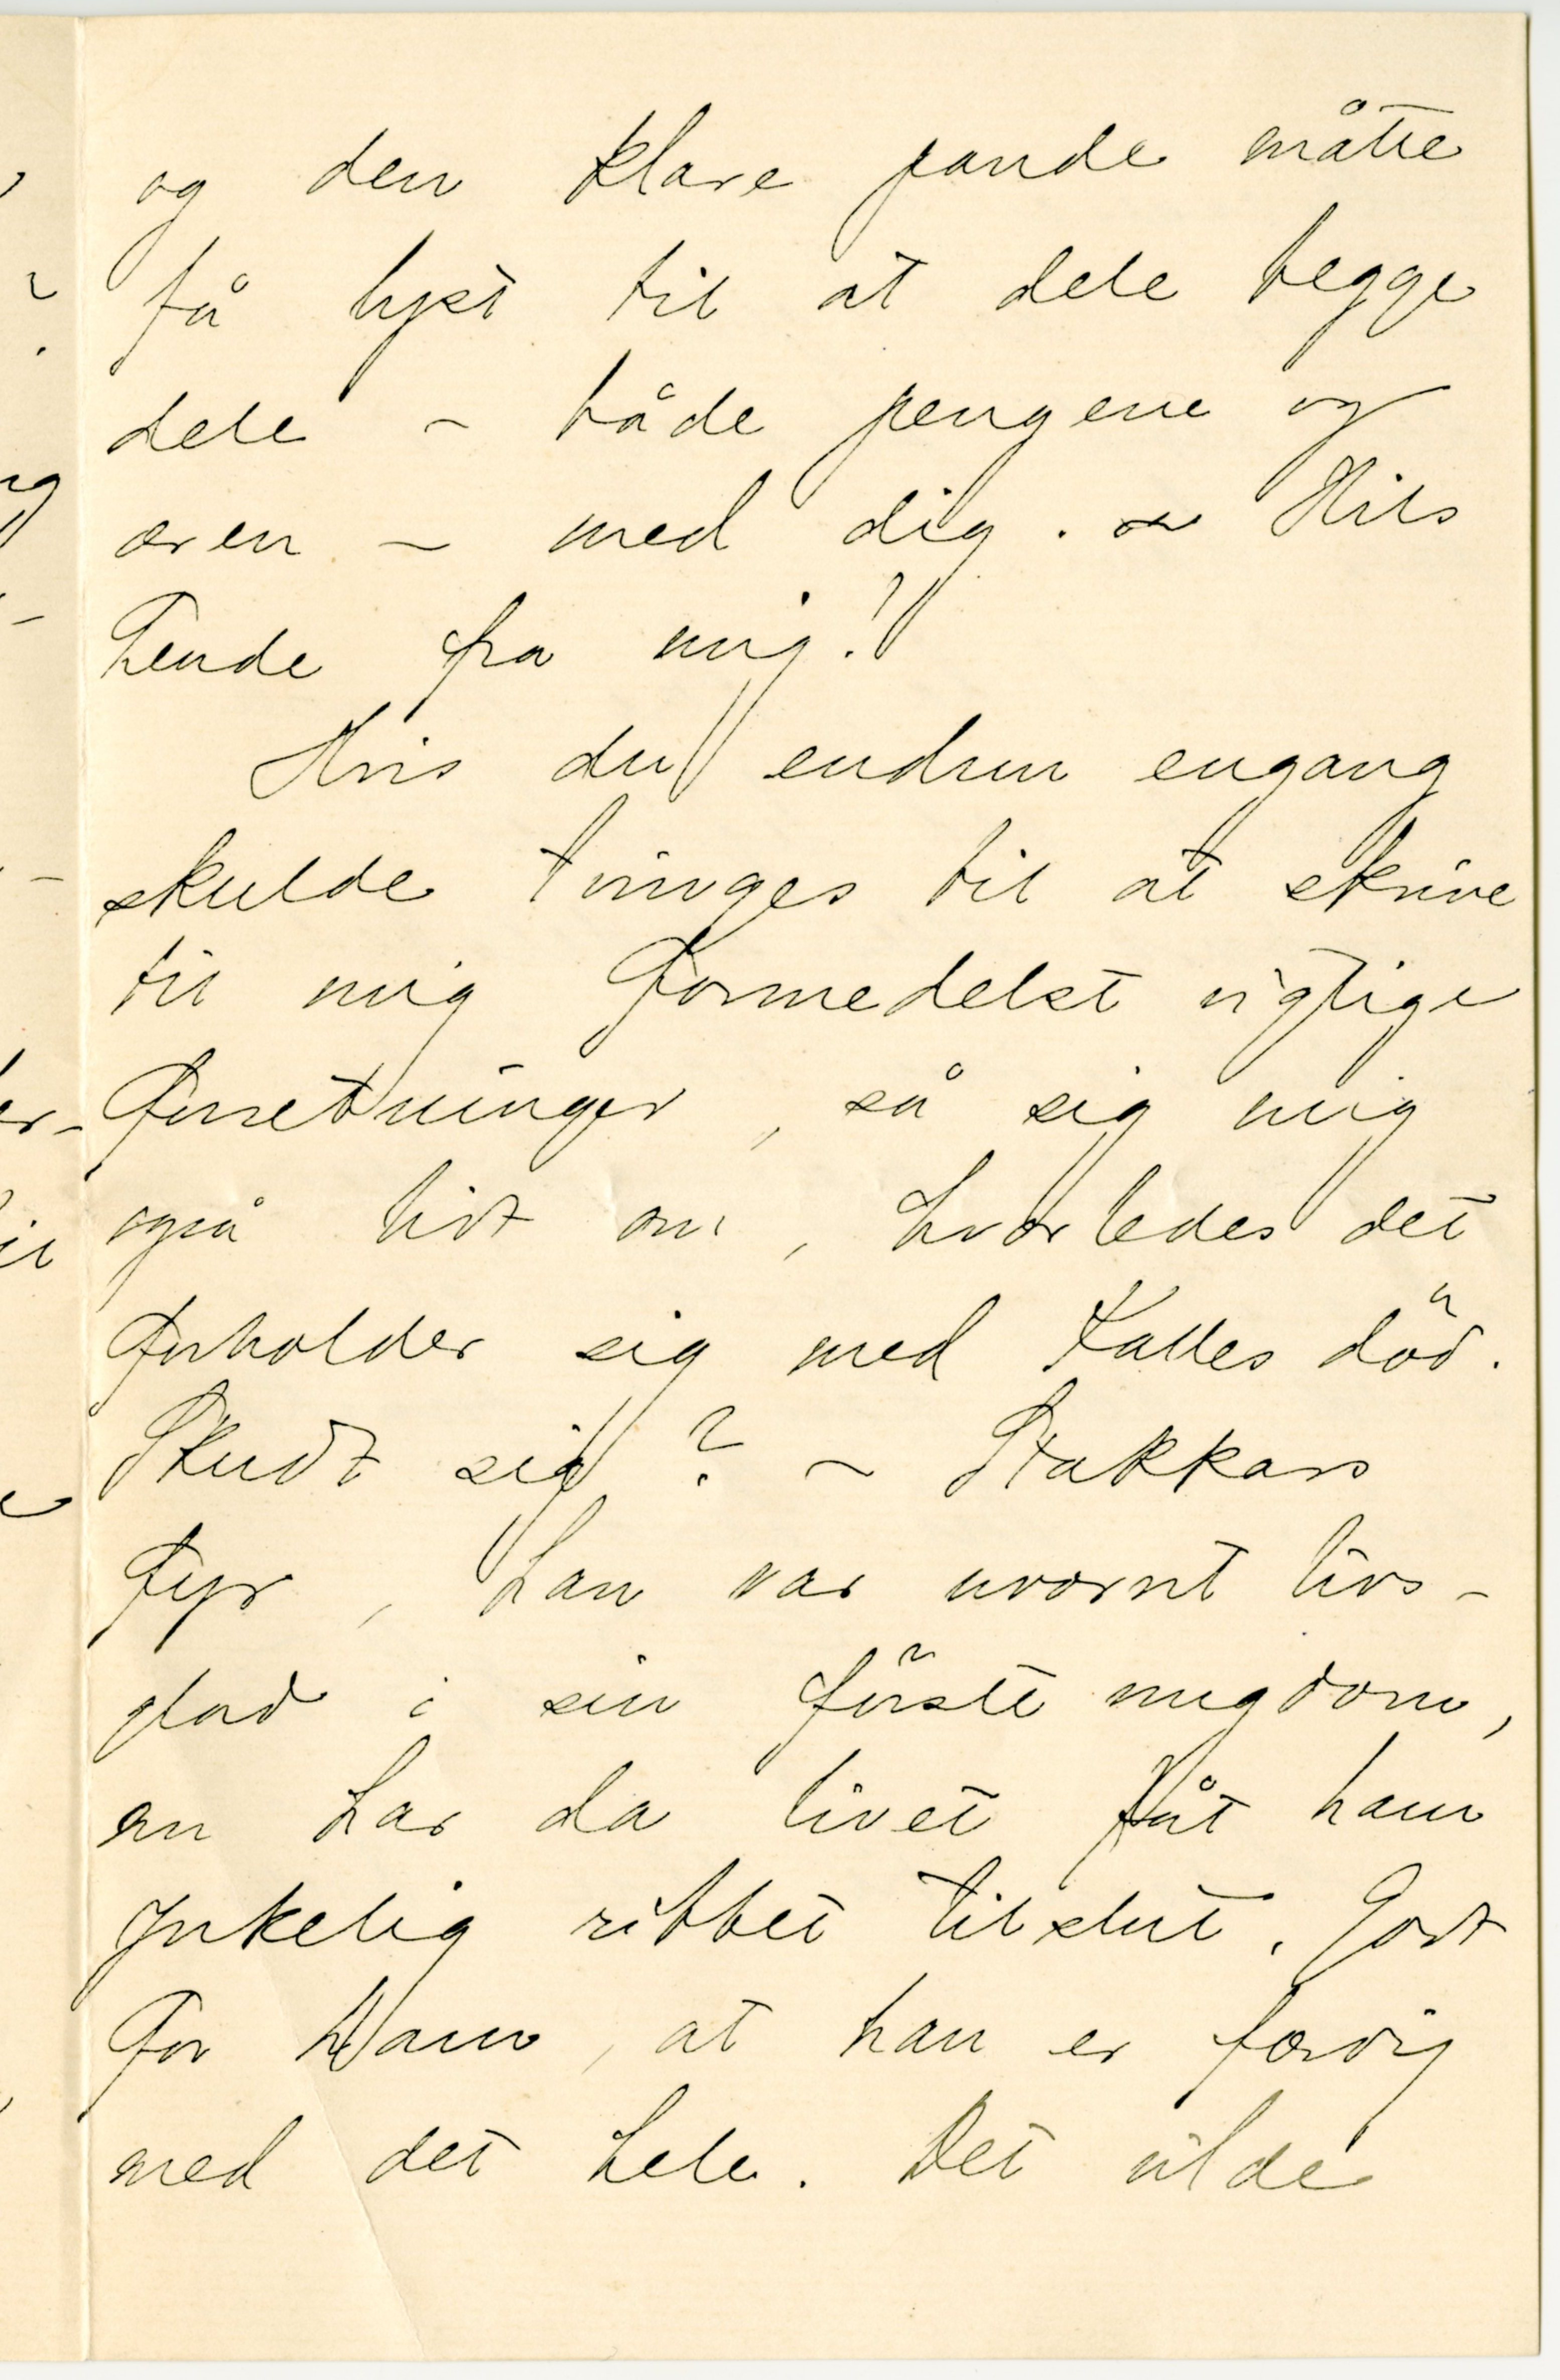 og den klare pande måtte
få lyst til at dele begge
dele – både pengene og
æren – med dig. – Hils
hende fra mig!
Hvis du endnu engang
skulde tvinges til at skrive
til mig formedelst vigtige
forretninger, så sig mig
også lidt om, hvorledes det
forholder sig med Kalles död.
Skudt sig? – Stakkars
fyr, han var uvornt livs-
glad i sin förste ungdom,
en har da livet fåt ham
ynkelig ribbet tilslut. Godt
for ham, at han er færdig
med det hele. Det vilde